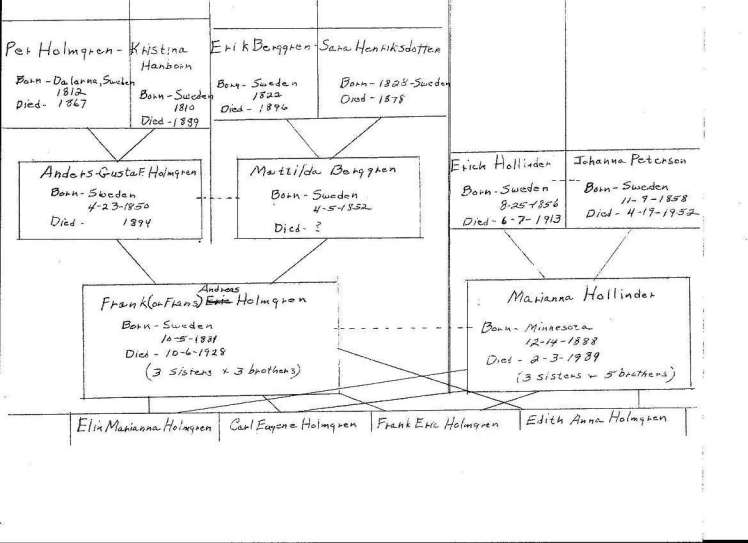 Per Holmgren - Kristina Hanborn
Born - Dalarna, Sweden
1812
Died - 1867
Born - Sweden
1810
Died - 1899
Erik Berggren - Sara Henriksdotter
Born - Sweden
1822
Died - 1896
Born - 1828 - Sweden
Died - 1878
Anders-Gustaf Holmgren
Born - Sweden
4-23-1850
Died - 1894
Matilda Berggren
Born - Sweden
4-5-1852
Died - ?
Erick Hollinder
Born - Sweden
8-25-1856
Died - 6-7-1913
Johanna Peterson
Born - Sweden
11-9-1858
Died - 4-19-1952
Andreas
Frank (or Frans) Eric Holmgren
Born - Sweden
10-5-1881
Died - 10-6-1928
(3 sisters & 3 brothers)
Marianna Hollinder
Born - Minnesota
12-14-1888
Died - 2-3-1989
(3 sisters & 5 brothers)
Elin Marianna Holmgren
Carl Eugene Holmgren
Frank Eric Holmgren
Edith Anna Holmgren